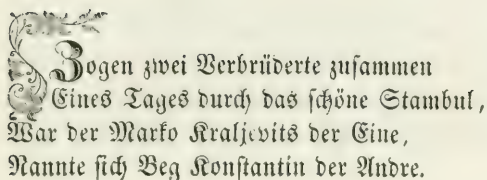 Zogen zwei Verbrüderte zusammen
Eines Tages durch das schöne Stambul,
War der Marko Kraljevits der Eine,
Nannte sich Beg Konstantin der Andre.